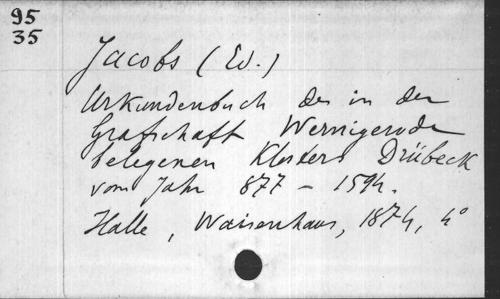 95
35
Jacobs (Ed.)
Urkundenbuch des in der
Grafschaft Wernigerode
belegenen Klosters Drübeck
vom Jahr 877 – 1594.
Halle, Waisenhaus, 1874, 4°